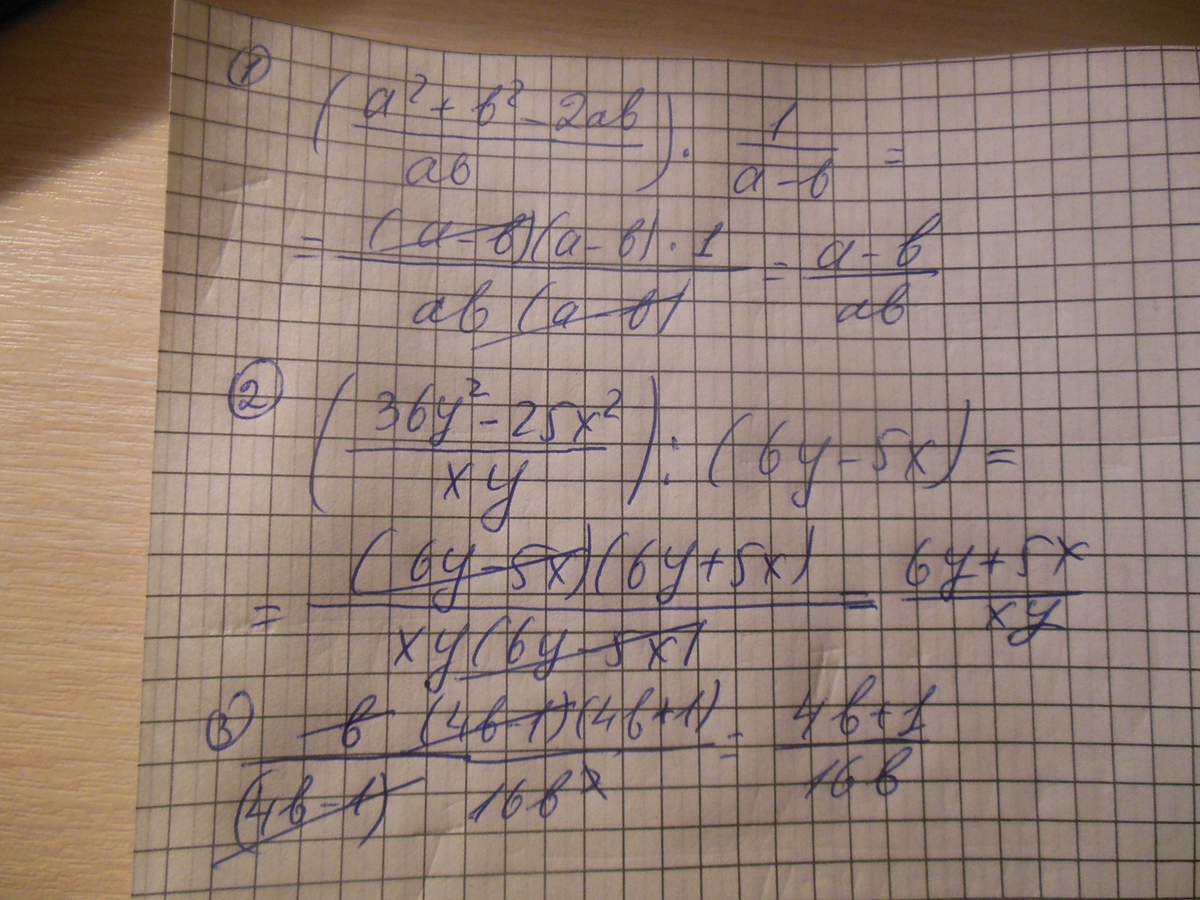 ① (a² + b² - 2ab / ab) · 1 / a - b =
= (a - b)(a - b) · 1 / ab (a - b) = a - b / ab
② (36y² - 25x² / xy) : (6y - 5x) =
= (6y - 5x)(6y + 5x) / xy (6y - 5x) = 6y + 5x / xy
③ b (4b - 1)(4b + 1) / (4b - 1) 16b² = 4b + 1 / 16b